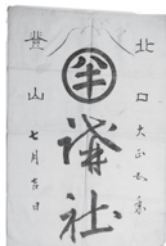 北口 大正
講社
登山 七月吉日